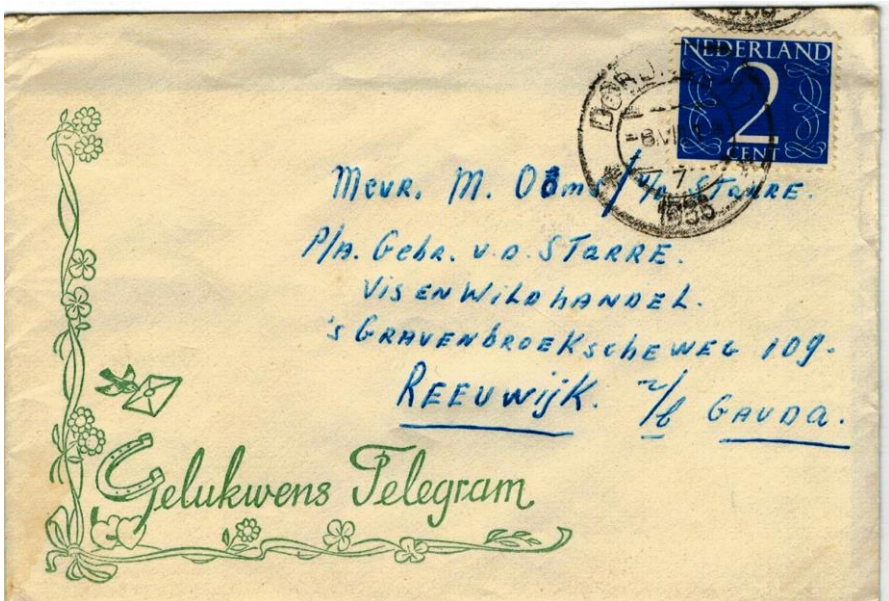 1955
NEDERLAND
2
CENT
7
1955
Mevr. M. Ooms / v/d STARRE.
P/A. Gebr. v.d. STARRE.
VIS EN Wild hANDEL.
's GRAVENbROEKscheWEG 109.
REEUWijK. b/ GAUDA.
Gelukwens Telegram